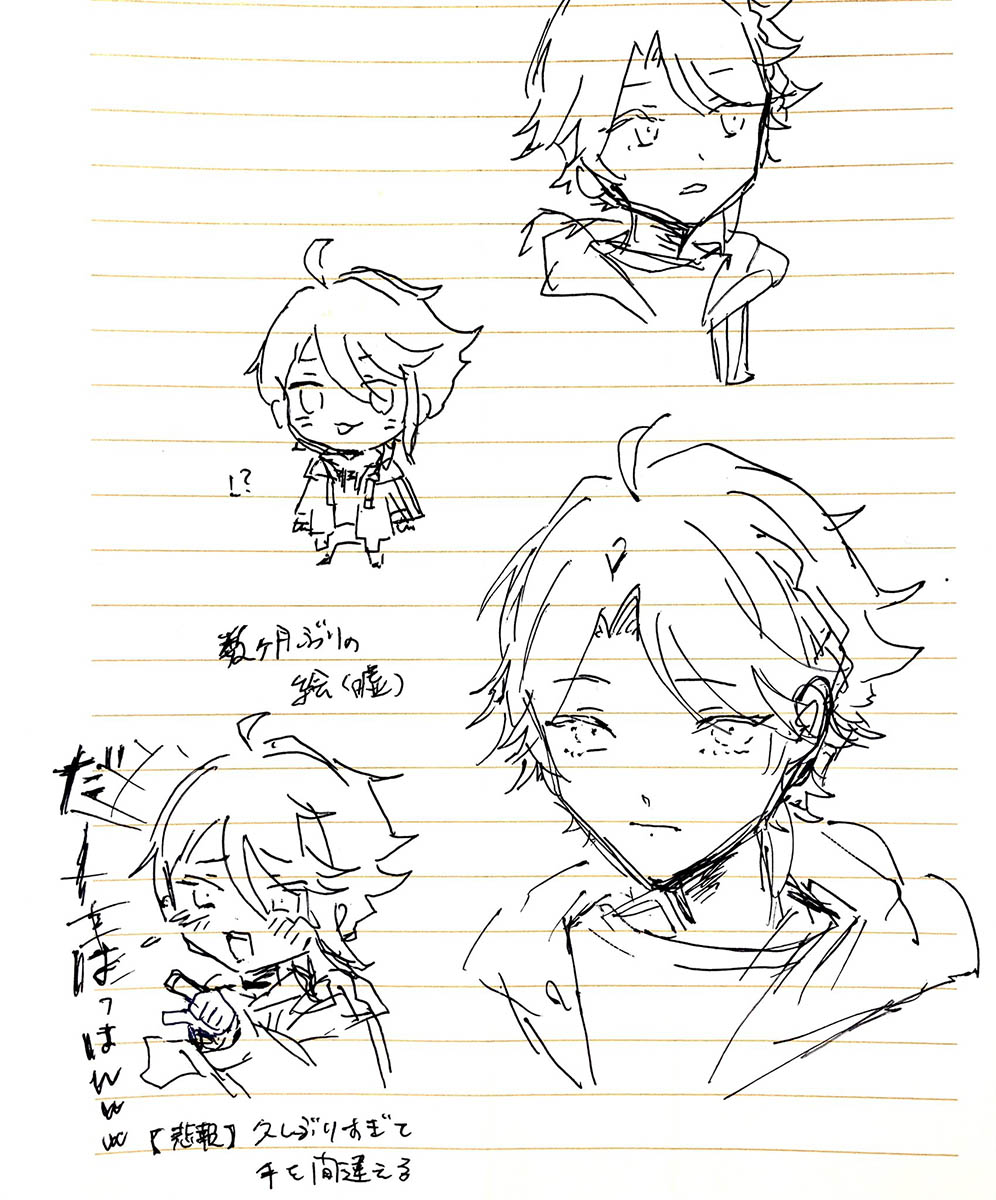 !?
数ヶ月ぶりの
絵(嘘)
だーーはっはwww
【悲報】久しぶりすぎて
手を間違える